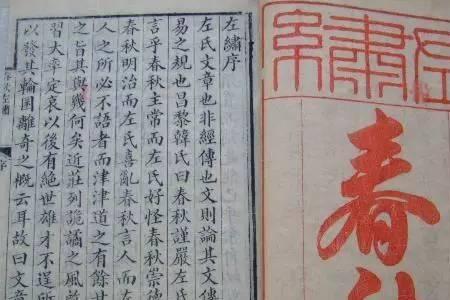 左繡
春
左繡序
左氏文章也非經傳也文則論其文
易之規也昌黎韓氏曰春秋謹嚴左
言乎春秋主常而左氏好怪春秋崇德
春秋明治而左氏喜亂春秋言人而左
人之所必不語者而津津道之有餘甘
之旨其與幾何矣近莊列詭譎之風
習大率定哀以後有絕世雄才不逞所
以發其輪囷離奇之概云耳故曰文章
春秋左繡
序